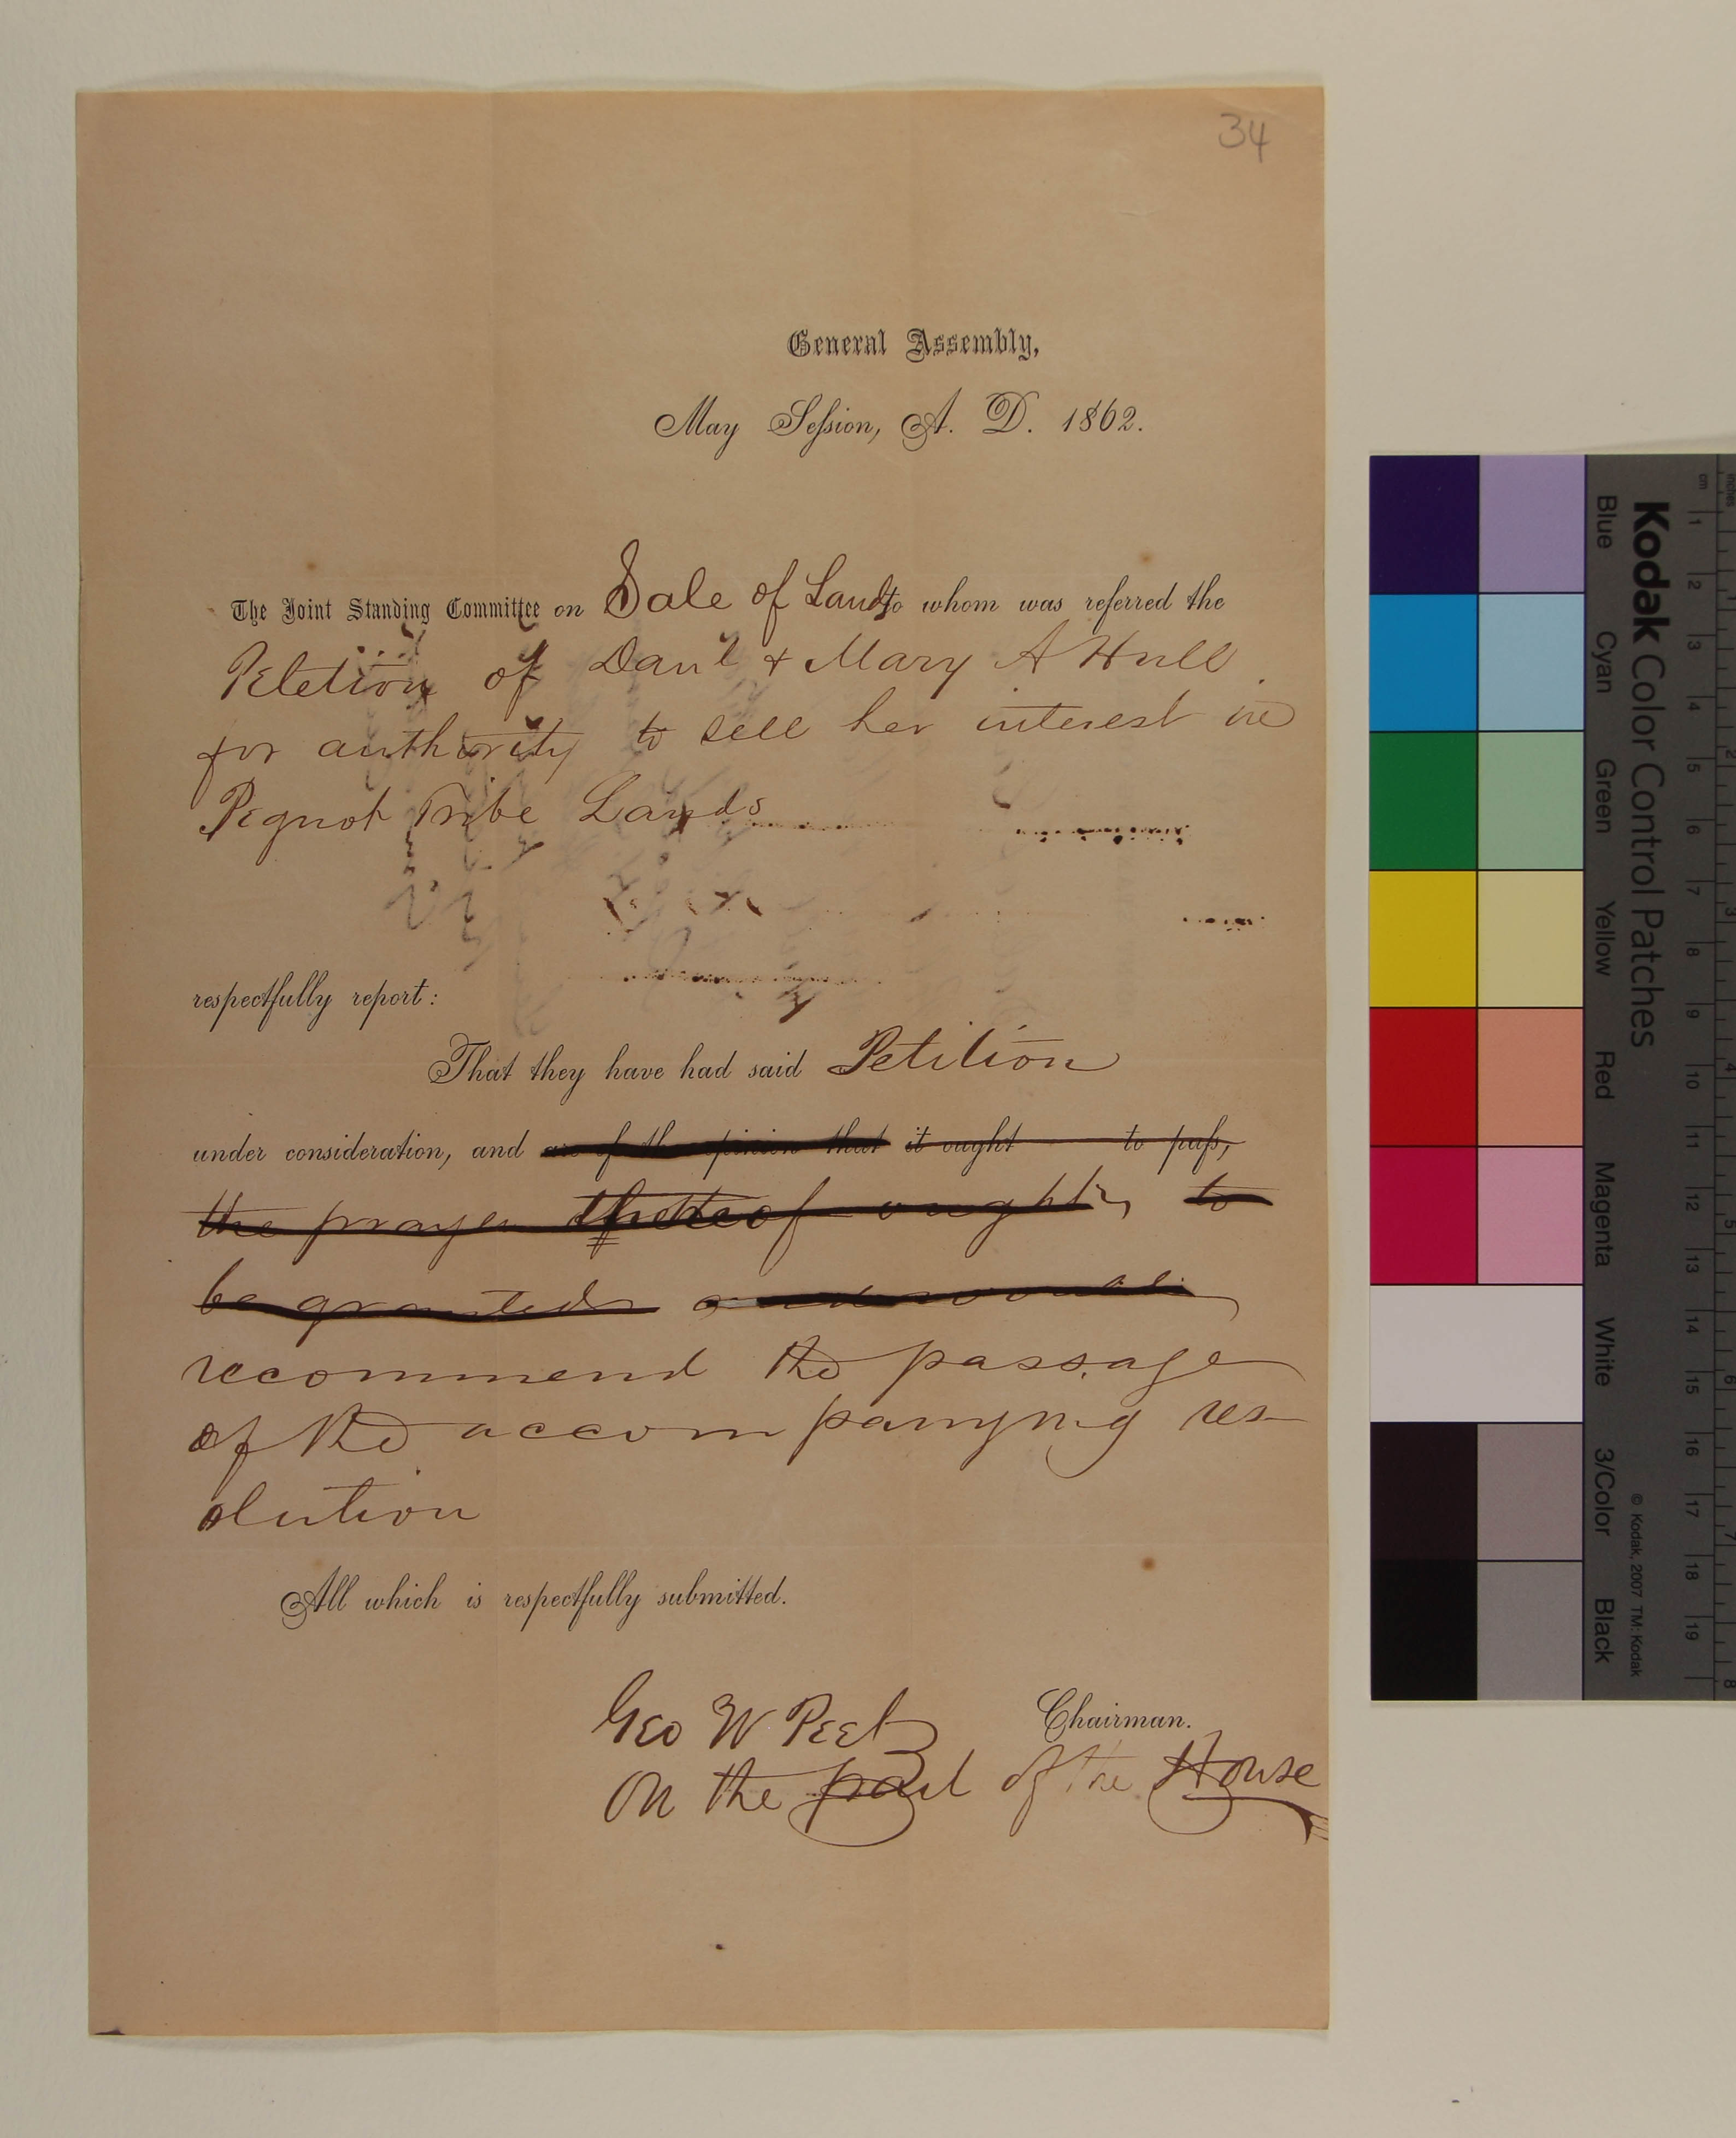 34
General Assembly,
May Session, A. D. 1862.
The Joint Standing Committee on Sale of Lands to whom was referred the
Petition of Danl & Mary A Hull
for authority to sell her interest in
Pequot Tribe Lands
respectfully report:
That they have had said Petition
under consideration, and are of the opinion that it ought to pass,
the prayer thereof ought to
be granted and would
recommend the passage
of the accompanying res
olution
All which is respectfully submitted.
Geo W Peet Chairman.
On the part of the House
Kodak Color Control Patches
Blue Cyan Green Yellow Red Magenta White 3/Color Black
© Kodak, 2007 TM: Kodak
cm 1 2 3 4 5 6 7 8 9 10 11 12 13 14 15 16 17 18 19
inches 2 3 4 5 6 7 8